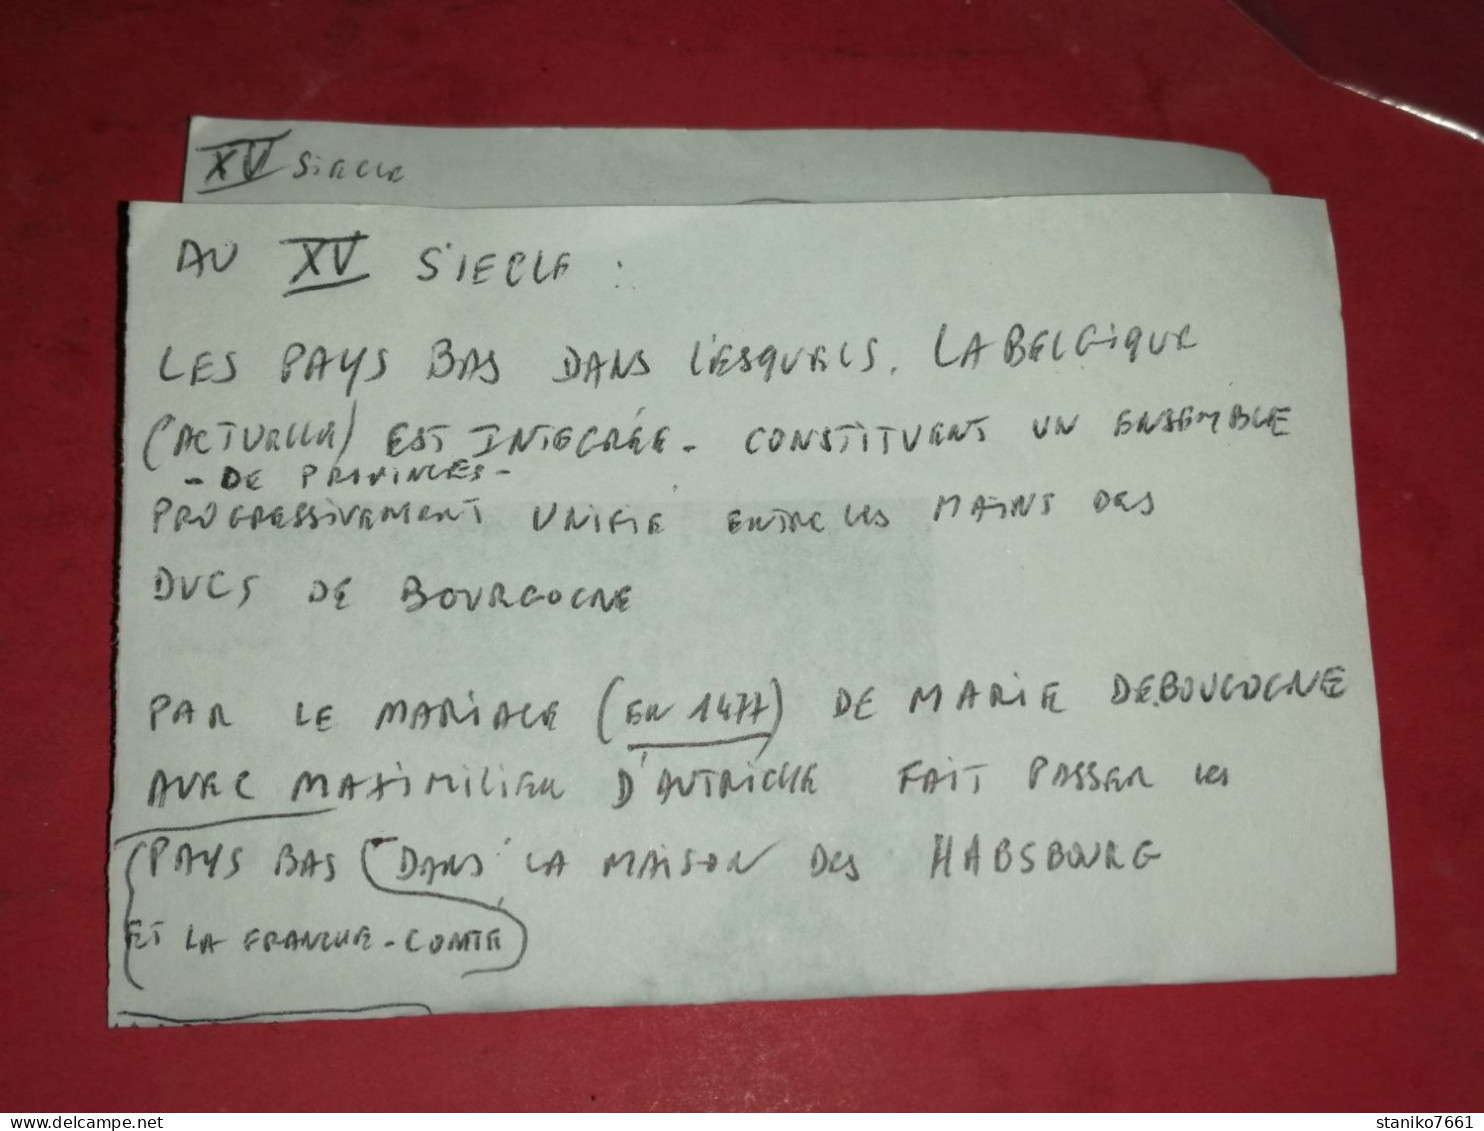 XV SiECLE
AU XV SIECLE :
LES PAYS BAS DANS L'ESQUELS. LA BELGIQUE
(ACTUELLE) EST INTEGRÉE - CONSTITUENT UN ENSEMBLE
- DE PROVINCES -
PROGRESSIVEMENT UNIFIÉ ENTRE LES MAINS DES
DUCS DE BOURGOGNE
PAR LE MARIAGE (EN 1477) DE MARIE DE BOUGOGNE
AVEC MAXIMILIEN D'AUTRICHE FAIT PASSER LES
PAYS BAS DANS LA MAISON DES HABSBOURG
ET LA FRANCHE-COMTÉ
delcampe.net
staniko7661